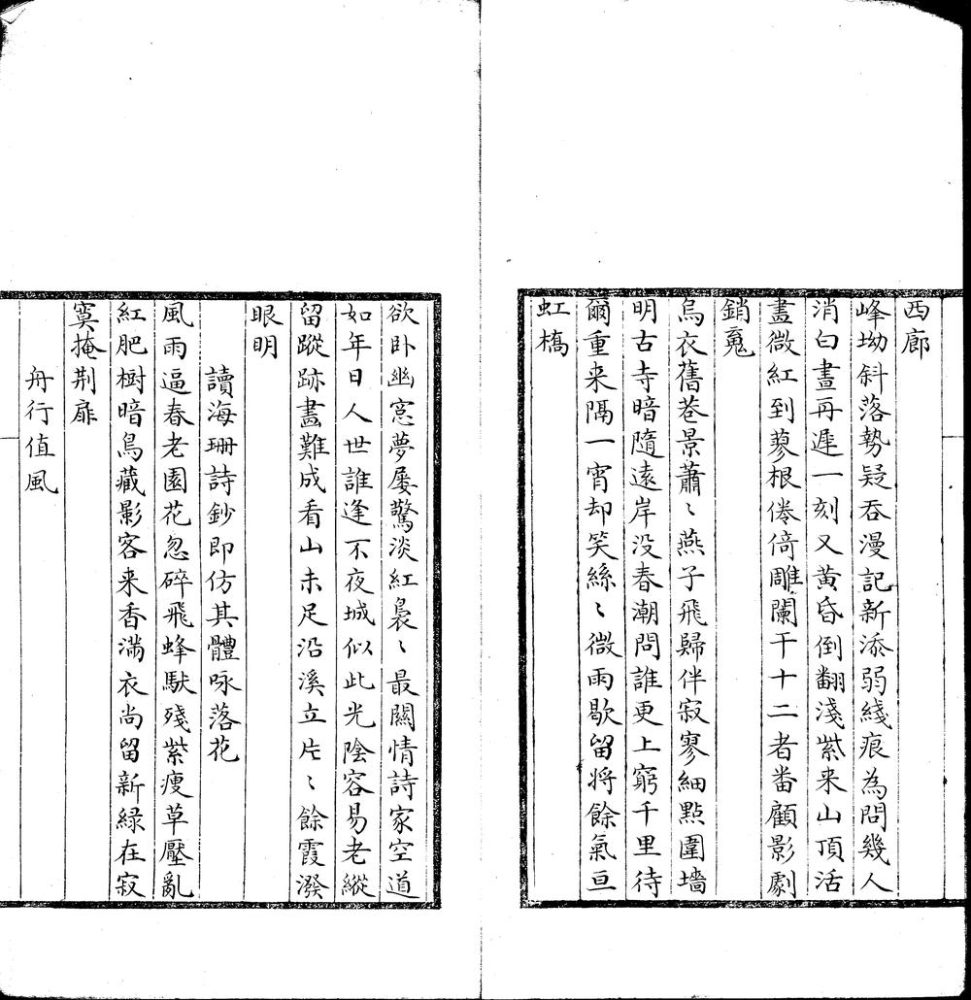 西廊
峰坳斜落勢疑吞漫記新添弱綫痕為問幾人
消白晝再遲一刻又黃昏倒翻淺紫来山頂活
畫微紅到蓼根倦倚雕闌干十二者番顧影劇
銷䰟
烏衣舊巷景蕭〻燕子飛歸伴寂寥細點圍墻
明古寺暗隨遠岸没春潮問誰更上窮千里待
爾重来隔一宵却笑絲〻微雨歇留將餘氣亘
虹橋
欲卧幽窓夢屢驚淡紅裊〻最關情詩家空道
如年日人世誰逢不夜城似此光陰容易老縱
留蹤跡畫難成看山未足沿溪立片〻餘霞潑
眼明
讀海珊詩鈔即仿其體咏落花
風雨逼春老園花忽碎飛蜂馱殘紫瘦草壓亂
紅肥樹暗鳥藏影客来香滿衣尚留新緑在寂
寞掩荆扉
舟行值風